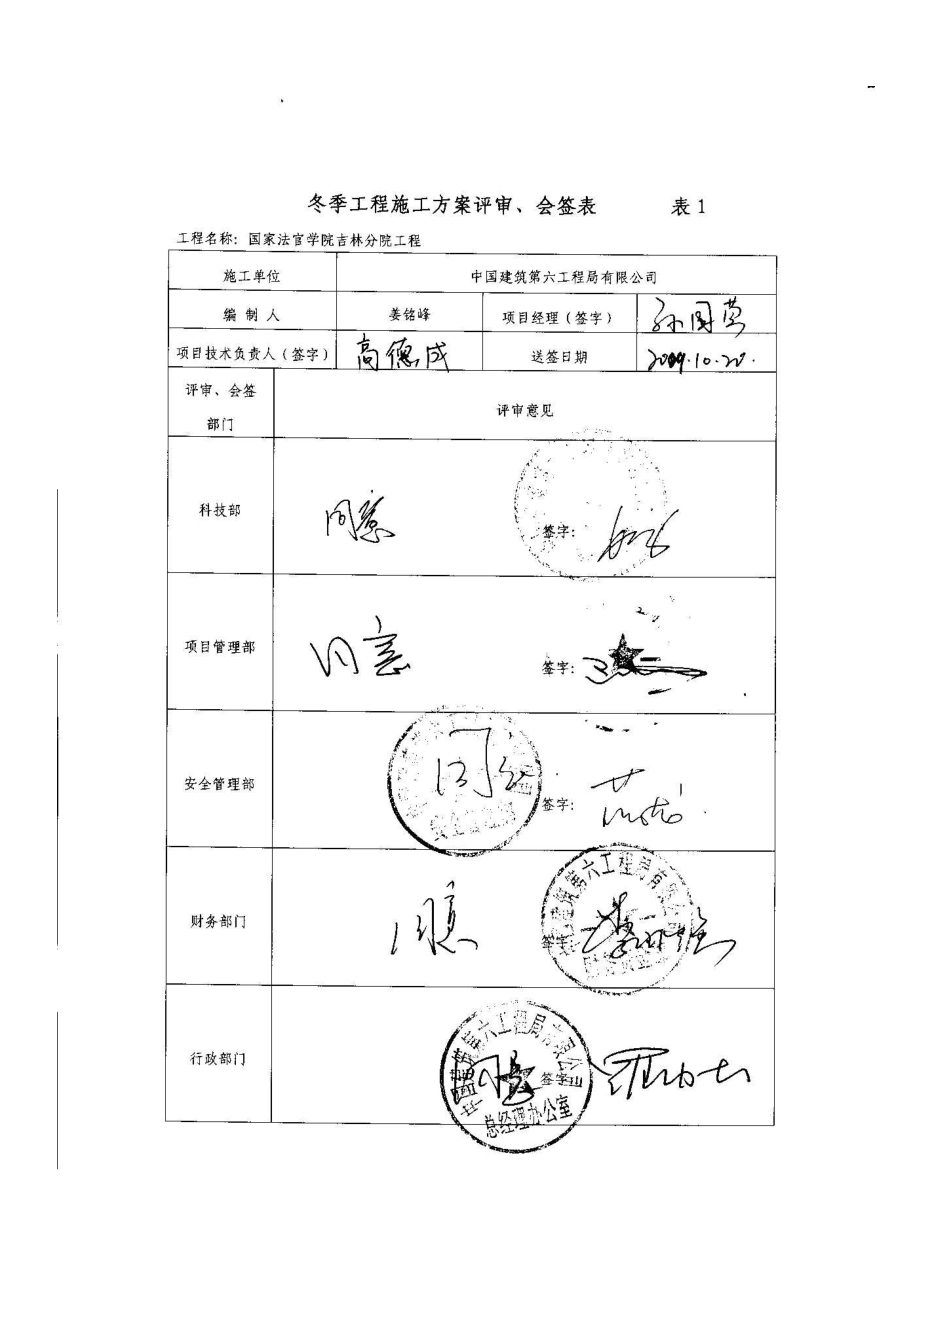 冬季工程施工方案评审、会签表 表1
工程名称：国家法官学院吉林分院工程
施工单位 中国建筑第六工程局有限公司
编 制 人 姜铭峰 项目经理（签字） 孙国营
项目技术负责人（签字） 高德成 送签日期 2009.10.20.
评审、会签
部门
评审意见
科技部 同意 签字：
项目管理部 同意 签字：
安全管理部 同意 签字：
安全管理部
财务部门 同意 签字：
第六工程局有限公司
行政部门 同意 签字
第六工程局有限公司
总经理办公室